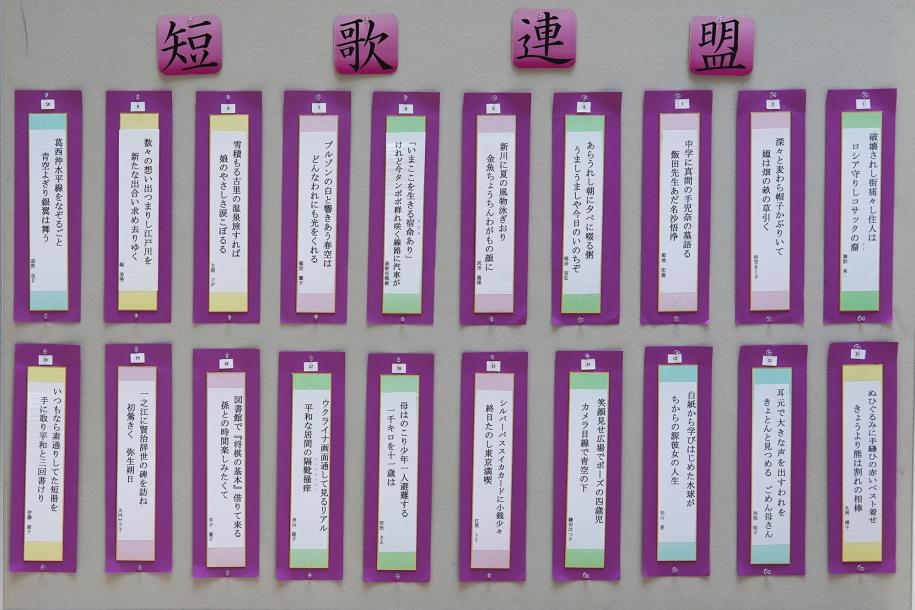 短歌連盟
1
破壊されし街痛々し住人は
ロシア守りしコサックの裔
2
深々と麦わら帽子かぶりいて
媼は畑の畝の草引く
3
中学に真間の手児奈の墓語る
飯田先生あだ名沙悟浄
4
あらうれし朝に夕べに啜る粥
うましうましや今日のいのちぞ
5
新川に夏の風物泳ぎおり
金魚ちょうちんわがもの顔に
6
「いまここを生きる宿命あり」
けれど今タンポポ群れ咲く線路に汽車が
7
ブルゾンの白と響きあう春空は
どんなわれにも光をくれる
8
雪積もる古里の温泉旅すれば
娘のやさしさ涙こぼるる
9
数々の想い出つまりし江戸川を
新たな出合い求め去りゆく
10
葛西沖水平線をなぞるごと
青空よぎり銀翼は舞う
11
ぬひぐるみに手縫ひの赤いベスト着せ
きょうより熊は割れの相棒
12
耳元で大きな声を出すわれを
きょとんと見つめる ごめん母さん
13
白紙から学びはじめた水球が
ちからの源彼女の人生
14
笑顔見せ広場でポーズの四歳児
カメラ目線で青空の下
15
シルバーパススイカカードに小銭少々
終日たのし東京満喫
16
母はのこり少年一人避難する
一千キロを十一歳は
17
ウクライナ画面通して見るリアル
平和な居間の隔靴掻痒
18
図書館で『将棋の基本』借りて来る
孫との時間楽しみたくて
19
一之江に賢治辞世の碑を訪ね
初鶯きく 弥生朔日
20
いつもなら素通りしてた短冊を
手に取り平和と三回書けり